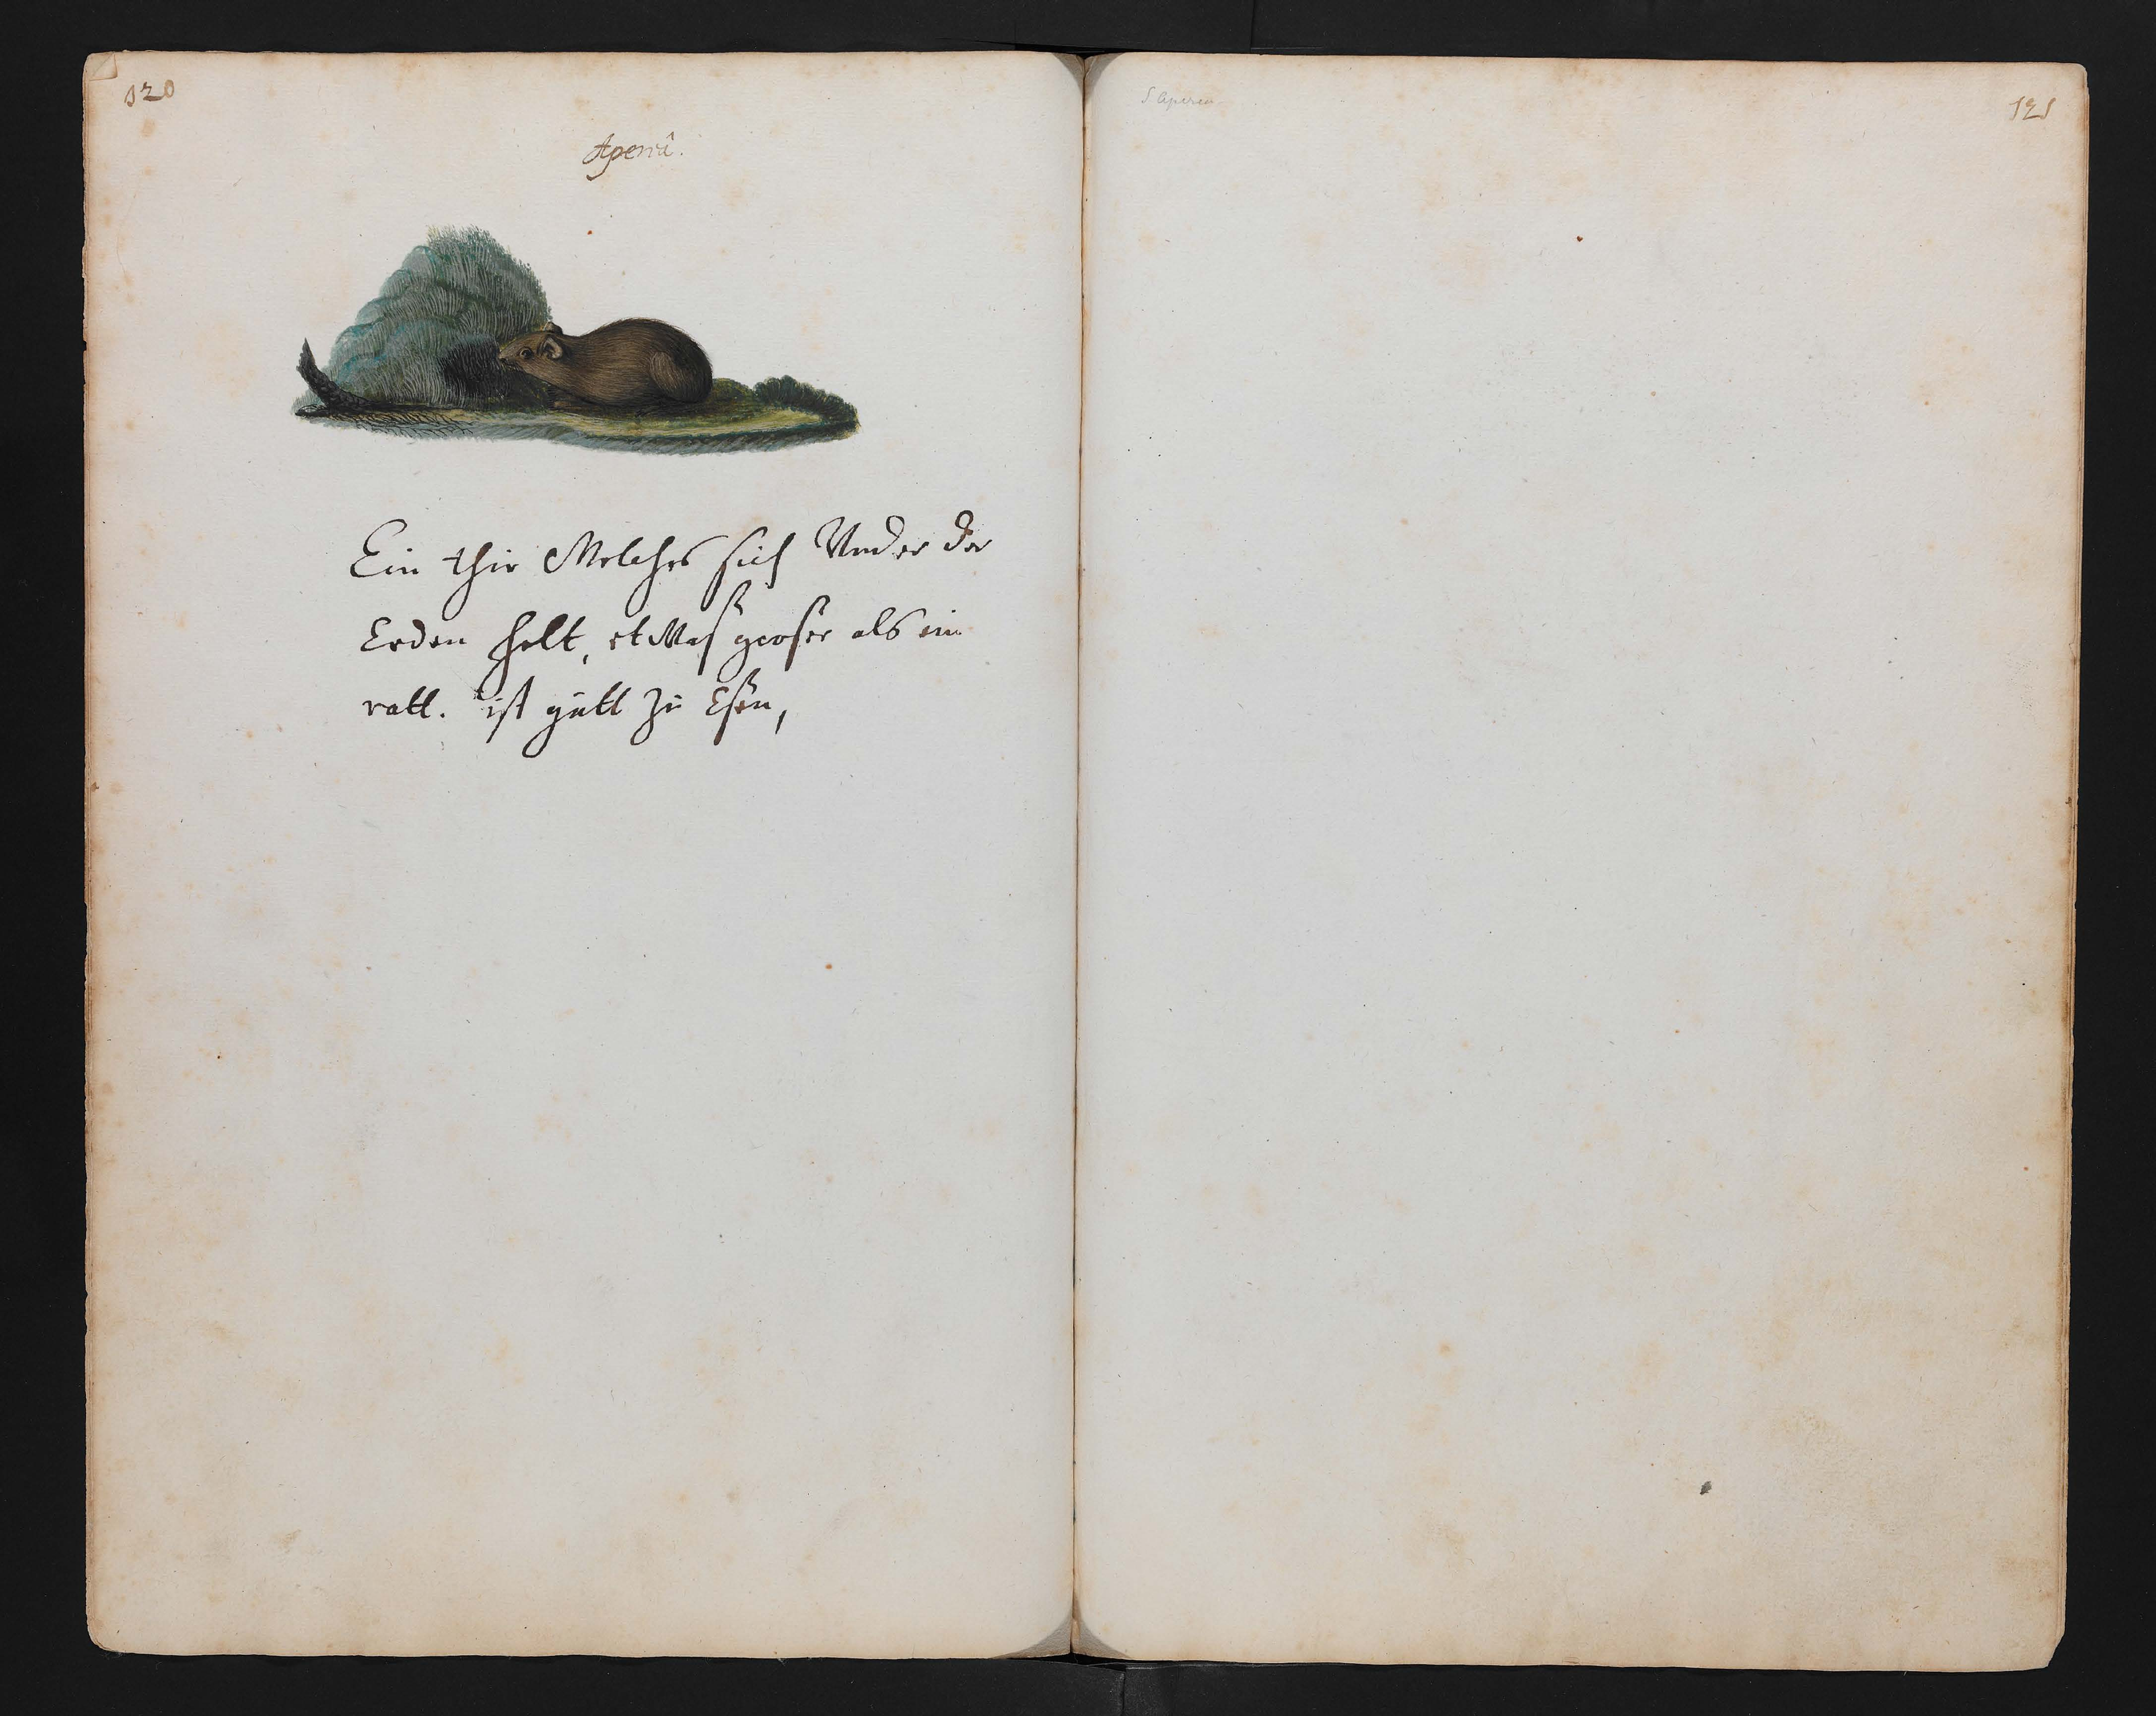 120
Aperiâ.
Ein thir Welches sich Vnder der
Erden helt, etWas groser als ein
ratt. ist gutt zu Esen,
Aperea
121